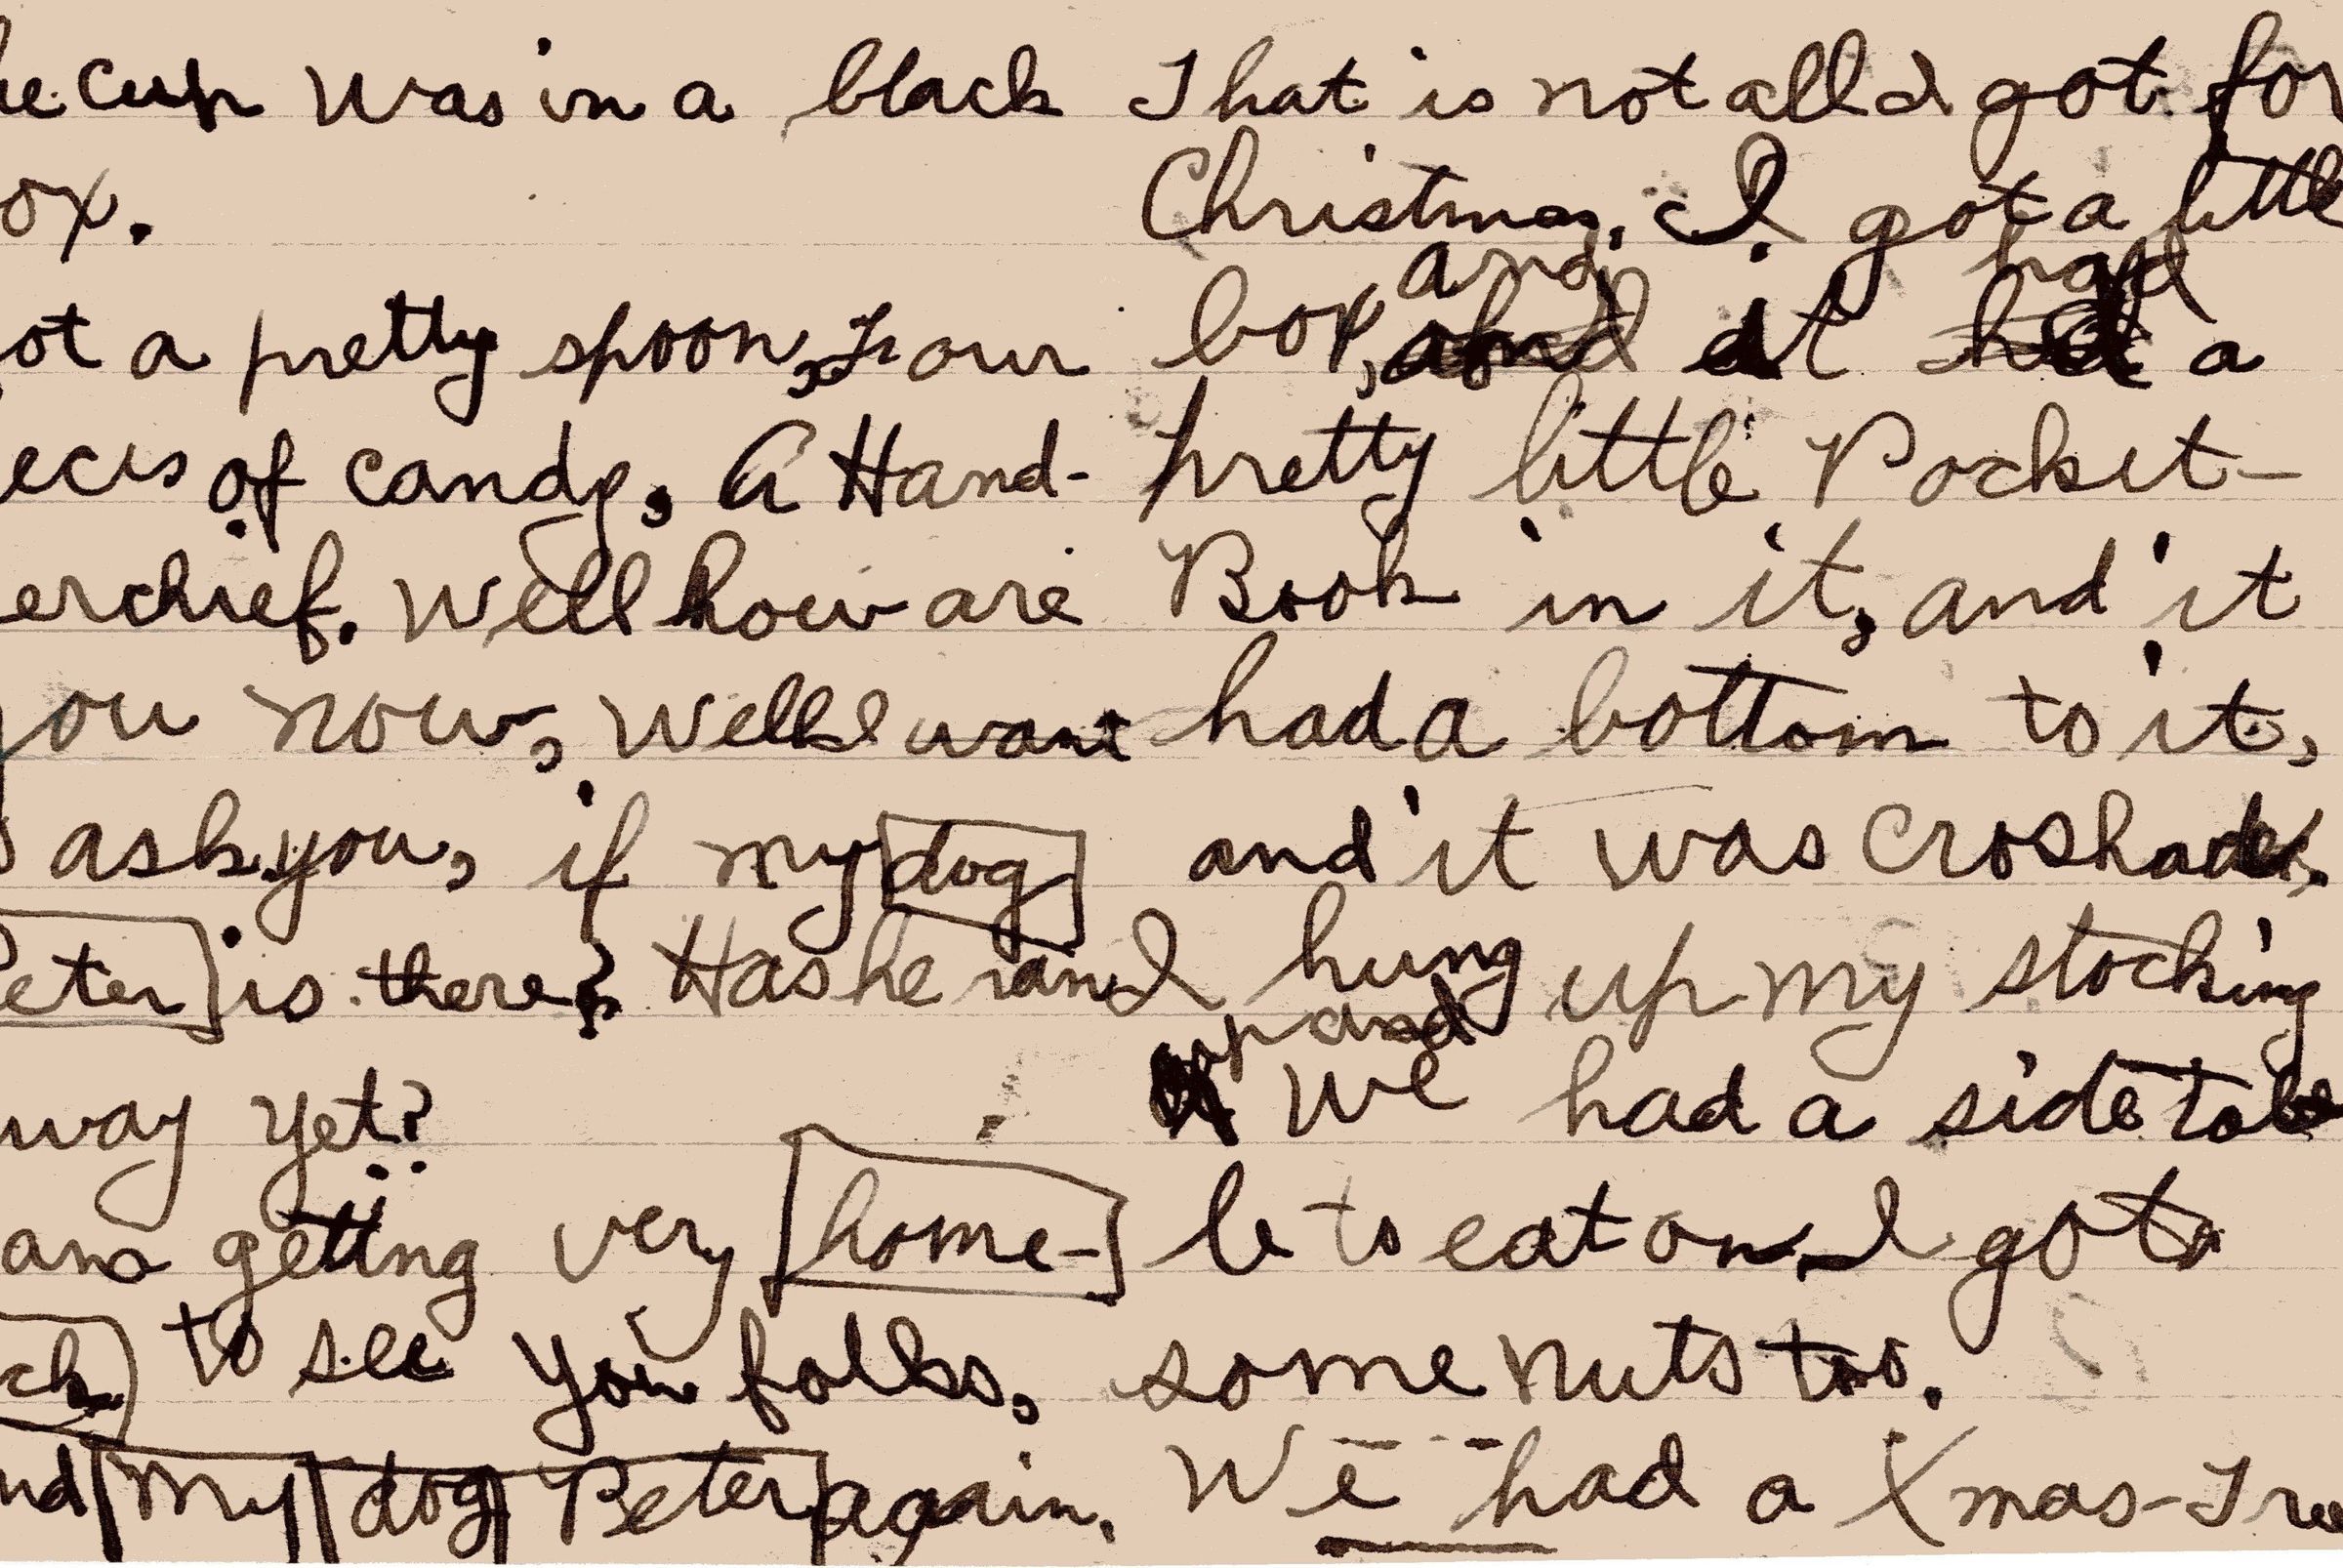 he cup was in a black
ox.
ot a pretty spoon, Four
eces of candy, A Hand-
erchief. Well how are
you now, Well I want
ask you, if my dog
Peter is there? Has he ran
way yet?
am getting very home-
ck to see you folks,
nd my dog Peter again.
That is not all I got for
Christmas. I got a little
box, and it had a
pretty little Pocket-
Book in it, and it
had a bottom to it,
and it was Croshade.
I hung up my stocking
up and
We had a side tab
le to eat on, I got a
some nuts too.
We had a Xmas-Tree